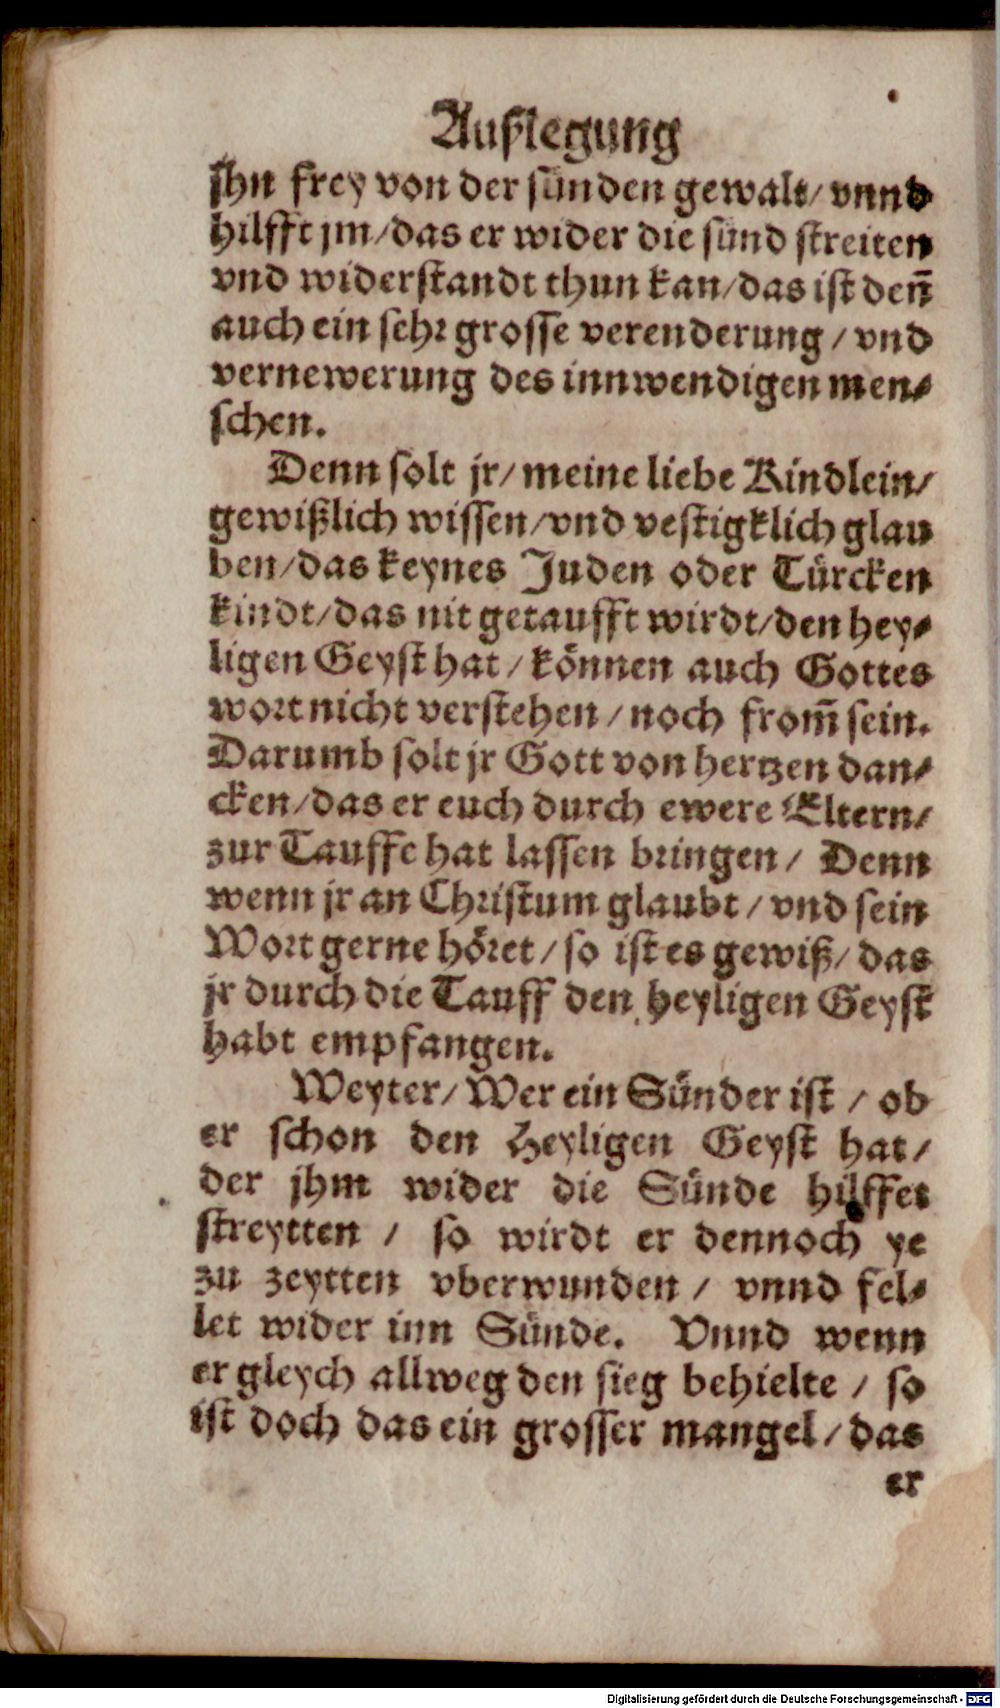 Außlegung
jhn frey von der sünden gewalt/ vnnd
hilfft jm/das er wider die sünd streiten
vnd widerstandt thun kan/das ist deñ
auch ein sehr grosse verenderung / vnd
vernewerung des innwendigen men⸗
schen.
Denn solt jr/ meine liebe Kindlein/
gewißlich wissen/vnd vestigklich glau
ben/das keynes Juden oder Türcken
kindt/das nit getaufft wirdt/den hey⸗
ligen Geyst hat / können auch Gottes
wort nicht verstehen / noch from̃ sein.
Darumb solt jr Gott von hertzen dan⸗
cken/das er euch durch ewere Eltern/
zur Tauffe hat lassen bringen / Denn
wenn jr an Christum glaubt / vnd sein
Wort gerne höret / so ist es gewiß/ das
jr durch die Tauff den heyligen Geyst
habt empfangen.
Weyter/ Wer ein Sünder ist / ob
er schon den Heyligen Geyst hat/
der jhm wider die Sünde hilffet
streytten / so wirdt er dennoch ye
zu zeytten vberwunden / vnnd fel⸗
let wider inn Sünde. Vnnd wenn
er gleych allweg den sieg behielte / so
ist doch das ein grosser mangel / das
er
Digitalisierung gefördert durch die Deutsche Forschungsgemeinschaft - DFG